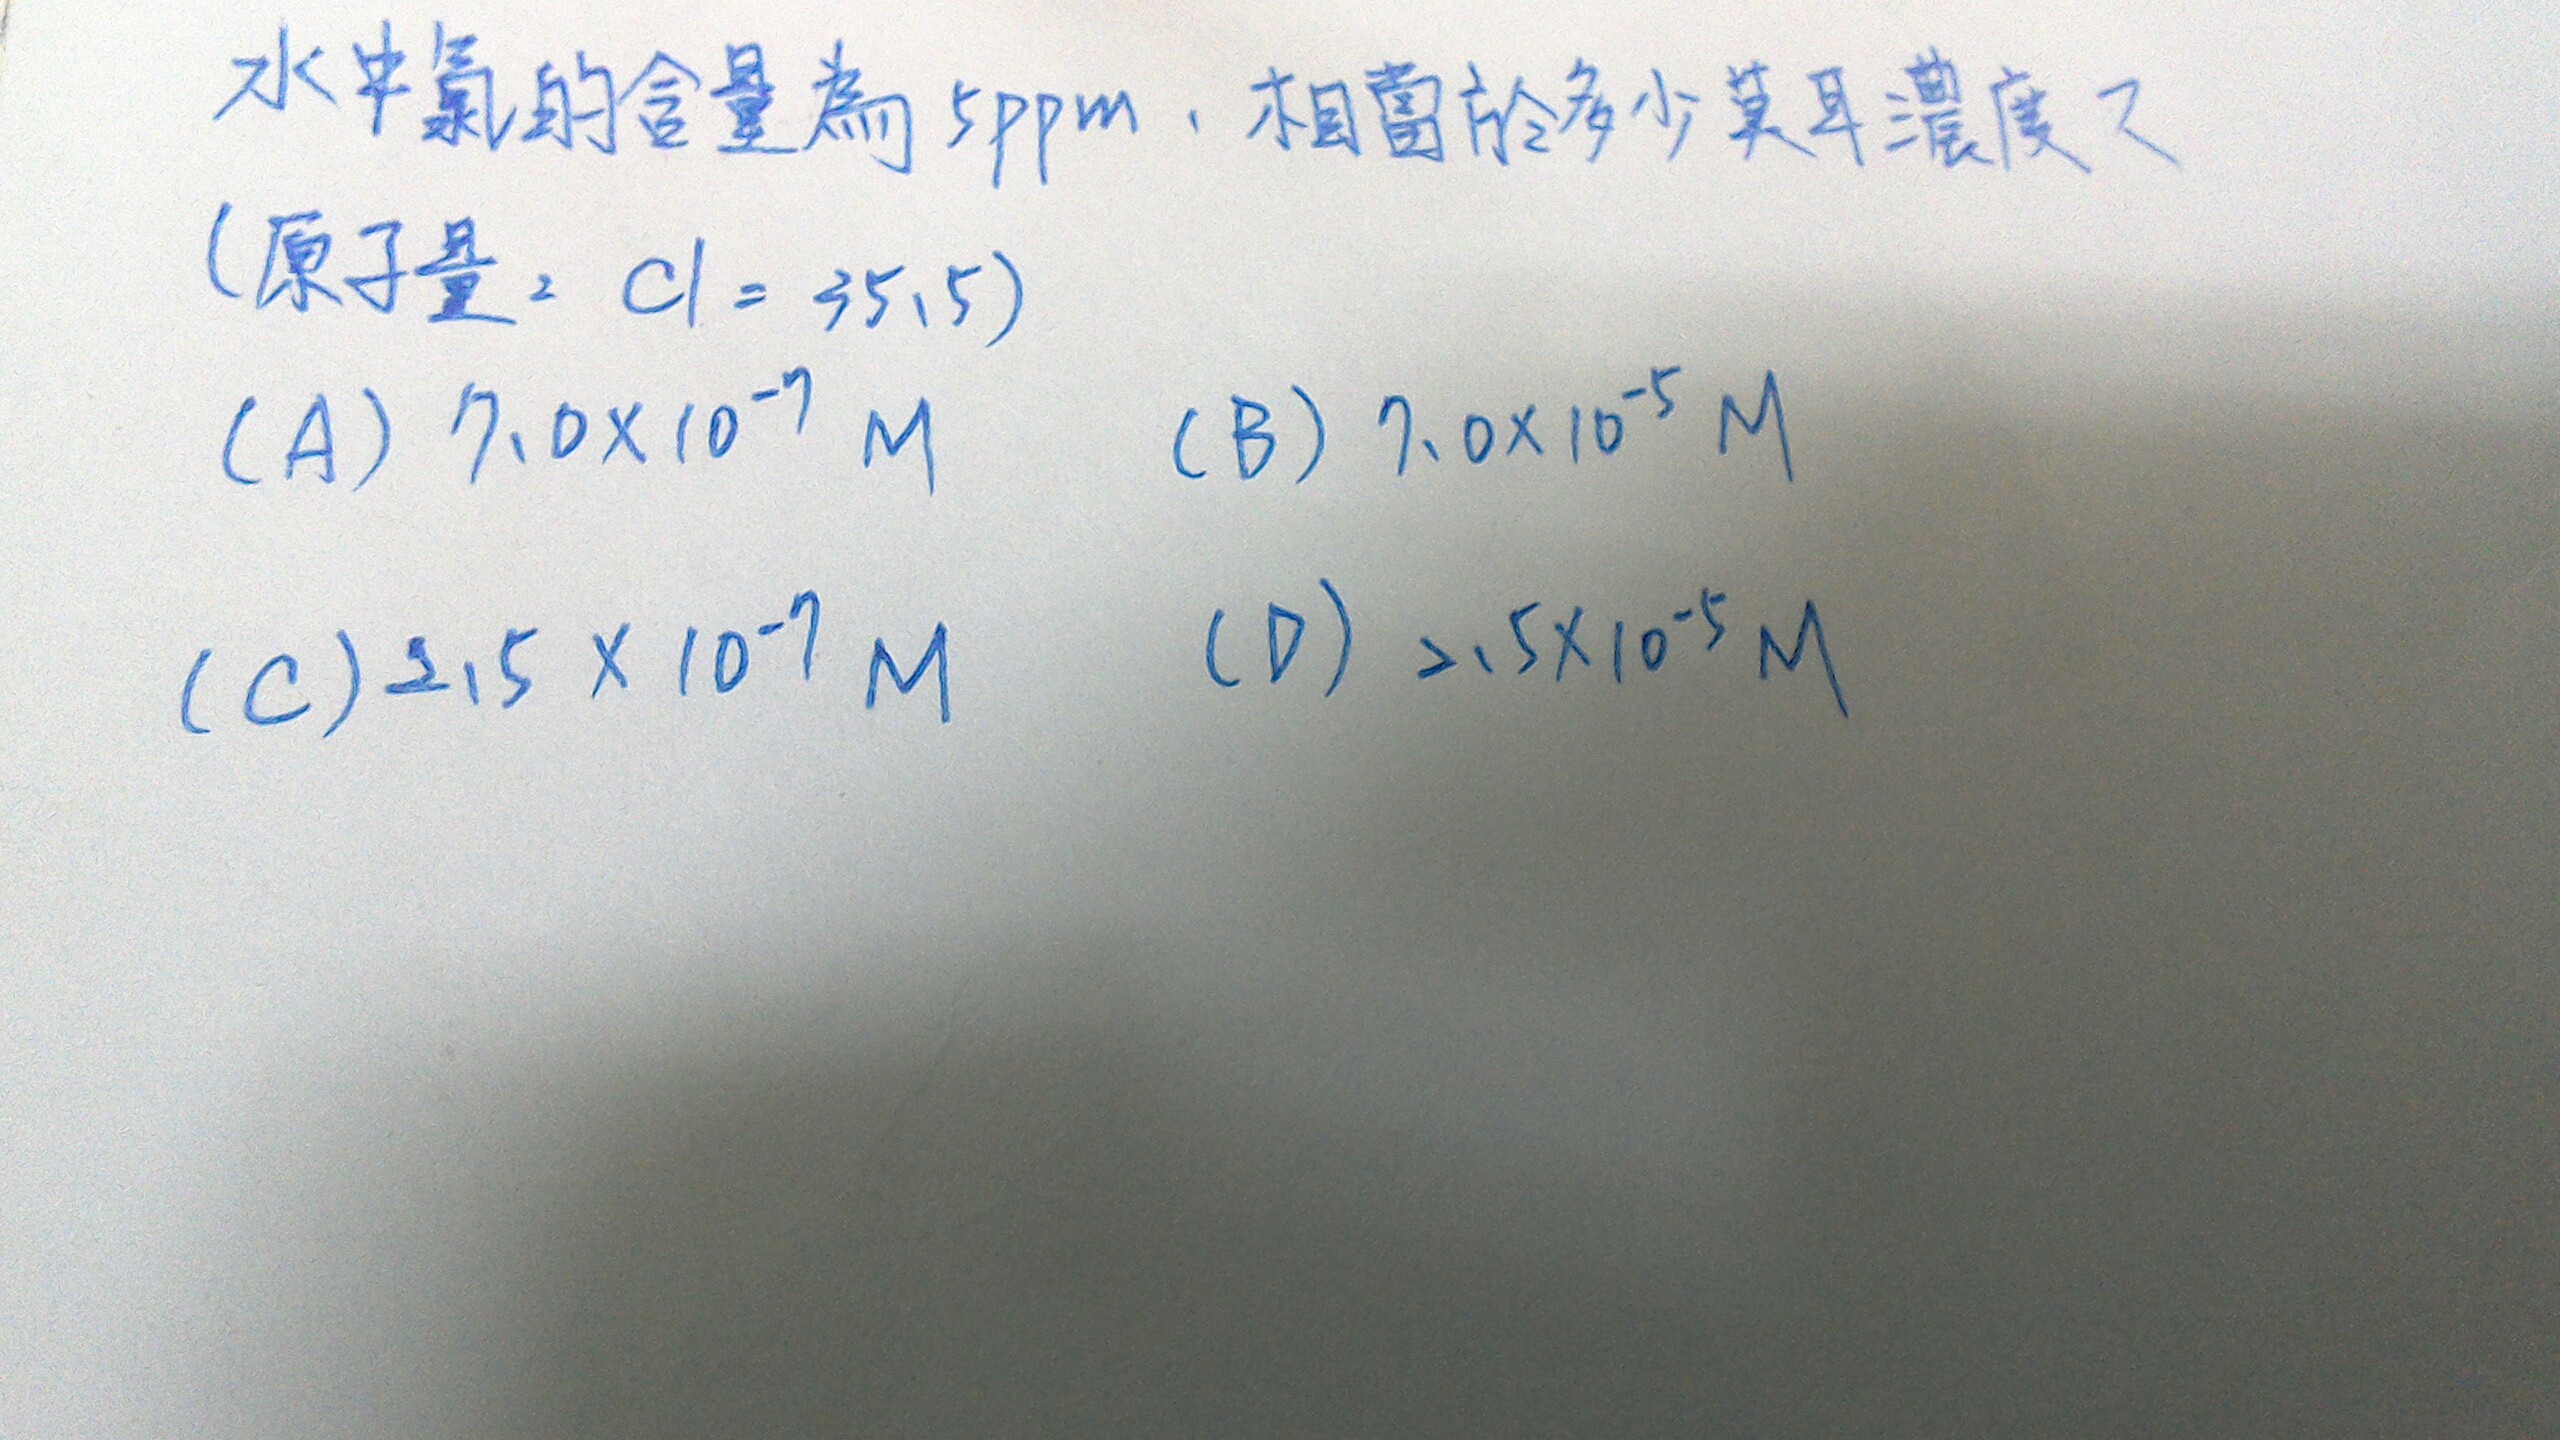 水中氯的含量為5ppm，相當於多少莫耳濃度？
(原子量：Cl = 35.5)
(A) 7.0×10⁻⁷ M (B) 7.0×10⁻⁵ M
(C) 2.5 × 10⁻⁷ M (D) 2.5×10⁻⁵ M